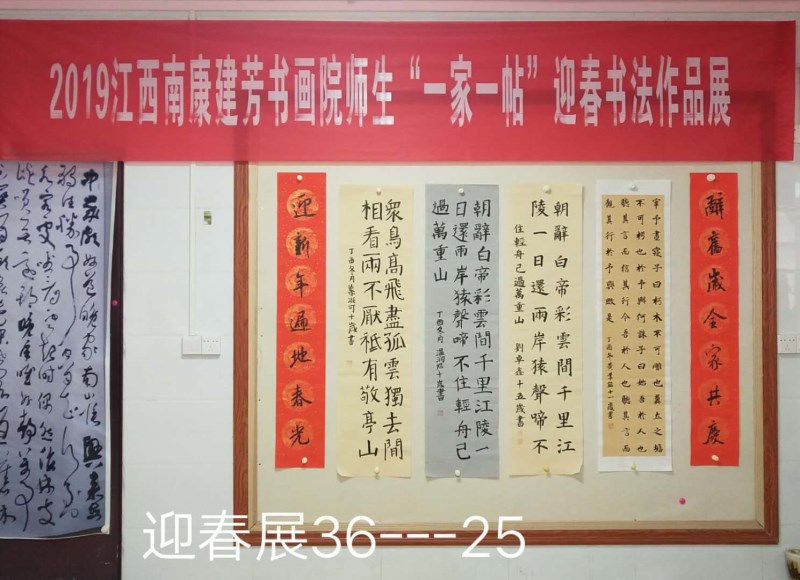 2019江西南康建芳书画院师生“一家一帖”迎春书法作品展
辭舊歲全家共慶
宰予晝寢子曰朽木不可雕也糞土之牆
不可杇也於予與何誅子曰始吾於人也
聽其言而信其行今吾於人也聽其言而
觀其行於予與改是 丁酉年
朝辭白帝彩雲間千里江
陵一日還兩岸猿聲啼不
住輕舟已過萬重山 劉卓鑫十五歲書
朝辭白帝彩雲間千里江陵一
日還兩岸猿聲啼不住輕舟已
過萬重山 丁酉冬月 十歲書
衆鳥高飛盡孤雲獨去閒
相看兩不厭祇有敬亭山
丁酉冬月 十歲書
迎新年遍地春光
中歲頗好道晚家南山陲興來每
迎春展36---25